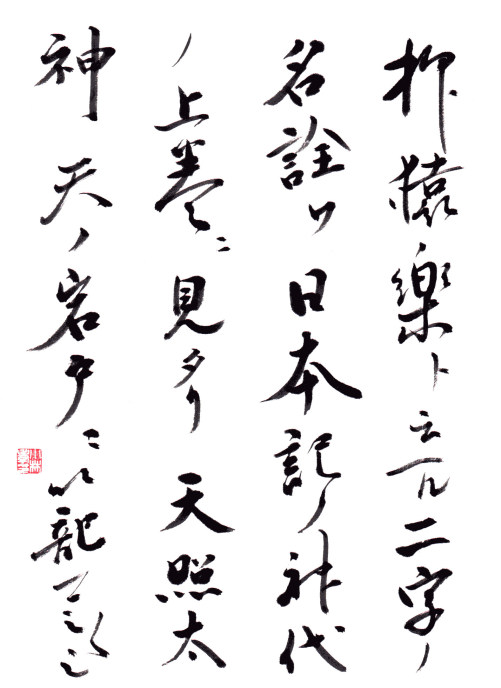 抑猿樂ト云ハ二字ノ
名詮ヮ日本記ノ神代
ノ上巻ニ見タリ天照太
神天ノ岩戸ニ